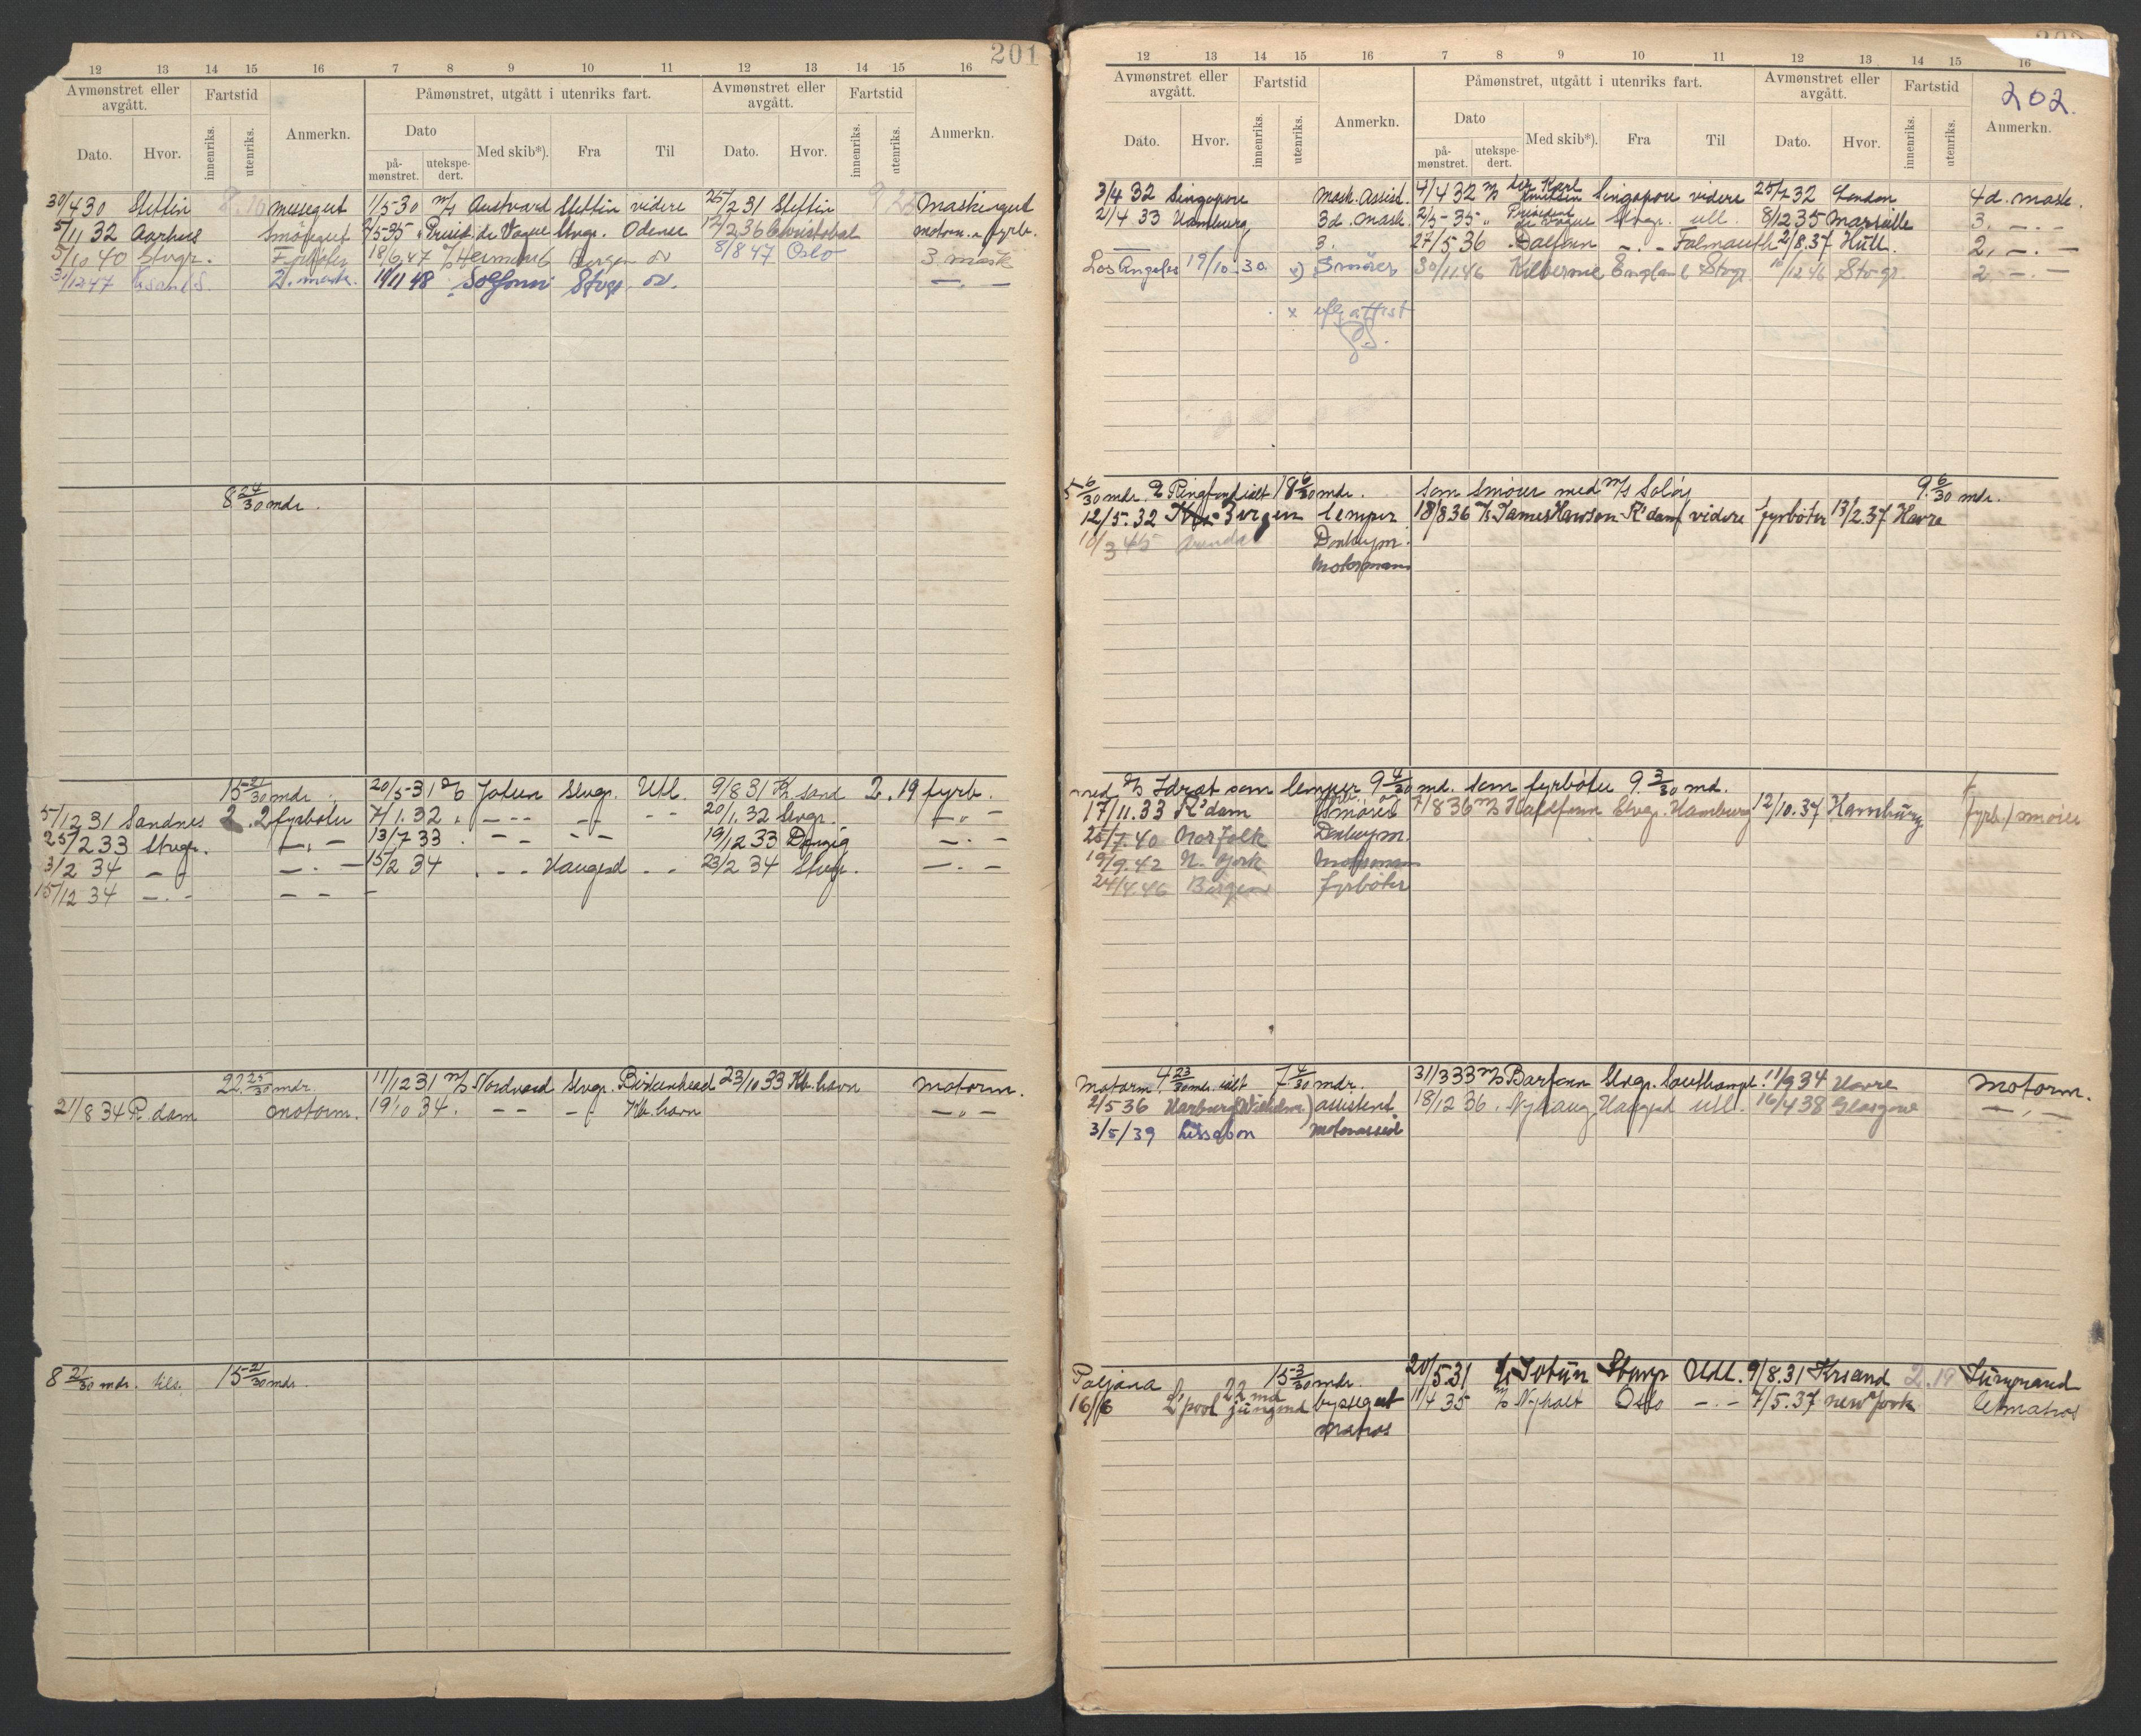 201
12 13 14 15 16 7 8 9 10 11 12 13 14 15 16
Avmønstret eller avgått. Fartstid Anmerkn. Påmønstret, utgått i utenriks fart. Avmønstret eller avgått. Fartstid Anmerkn.
Dato. Hvor. innenriks. utenriks. Dato Med skib*). Fra Til Dato. Hvor. innenriks. utenriks.
på-mønstret. utekspe-dert.
30/4 30 Stettin 8.16 messegut 1/5-30 m/s Austvard Stettin videre 25/2 31 Stettin 9 23 Maskingut
5/11 32 Aarhus Smøregut 2/5 35 " Presid. de Vogue Stvgr. Odense 12/2 36 Christobal motorm. & fyrb.
5/10 40 Stvgr. Fyrbøter 18/6 47 Bergen ov 8/8 47 Oslo 3 mask
31/12 47 Krsand S. 2. mask. 19/11 48 Solfonn Stvgr. ov. — . —
8 24/30 mdr.
15 21/30 mdr. 20/5-31 d/s Jotun Stvgr. Utl. 9/8 31 Kr.sand 2. 19 fyrb.
5/12 31 Sandnes 2. 2 fyrbøter 7/1. 32 " — — — " — — — 20/1. 32 Stvgr. — " —
25/2 33 Stvgr. — " — 13/7 33 . — — — 19/12 33 Danzig — . —
3/2 34 — " — — . — 15/2 34 . — — Haugesd — — 23/2 34 Stvgr. — . —
15/12 34 — . — — — —
22 25/30 mdr. 11/12 31 m/s Nordvard Stvgr. Birkenhead 23/10 33 Kb.havn motorm.
21/8 34 R.dam motorm. 19/10 34. — — — " — Kb.havn — " —
8 21/30 mdr. tils. 15 21/30 mdr.
202.
12 13 14 15 16 7 8 9 10 11 12 13 14 15 16
Avmønstret eller avgått. Fartstid Anmerkn. Påmønstret, utgått i utenriks fart. Avmønstret eller avgått. Fartstid Anmerkn.
Dato. Hvor. innenriks. utenriks. Dato Med skib*). Fra Til Dato. Hvor. innenriks. utenriks.
på-mønstret. utekspe-dert.
3/4 32 Singapore Mask. Assist. 4/4 32 m/s Sir Karl Knudsen Singapore videre 25/7 32 London 4d. mask.
21/4 33 Hamburg 3d. mask. 2/5-35 " President de Vogue Stvgr. utl. 8/12 35 Marseille 3. — . —
3. 27/5 36 . Dalfonn — . — Falmouth 2/8.37 Hull. 2. — . —
Los Angeles 19/10-30 x) Smører 30/11 46 Kilbernie England Stvgr. 10/12 46 Stvgr. 2. — . —
x iflg attest
5 6/30 mdr. Ringfond ialt 18 6/30 mdr. som smører med m/s Solør 9. 6/30 mdr.
12/5. 32 Bergen lemper 18/8 36 James Hawson R'dam videre fyrbøter 13/2. 37 Havre
10/3 45 Arendal Donkeym.
Motormann
med d/s Idræt som lemper 9 4/30 md. som fyrbøter 9 3/30 md.
17/11. 33 R'dam smører 7/8 36 m/s Havfonn Stvgr. Hamburg 12/10. 37 Hamburg fyrb./smører
25/7. 40 Norfolk Donkeym.
19/9. 42 N. York Motormann
24/4. 46 Bergen fyrbøter
Motorm. 4 23/30 md. ialt 7 4/30 mdr. 31/3 33 m/s Barfonn Stvgr. Southampt. 11/9 34 Havre motorm.
2/5 36 Harburg (Wilhelm.) assistent 18/12 36 . Nyhaug Haugesd utl. 16/4 38 Glasgow — " —
3/5/39 Lissabon motorassist
Poljana 15 3/30 mdr. 20/5 31 Jotun Stavgr Utl. 9/8. 31 Krsand 2. 19 Jungmand
16/6 L'pool 22 md jungmd byssegut 11/4 35 m/s Nyholt Oslo — . — 7/5. 37 New York letmatros
matros